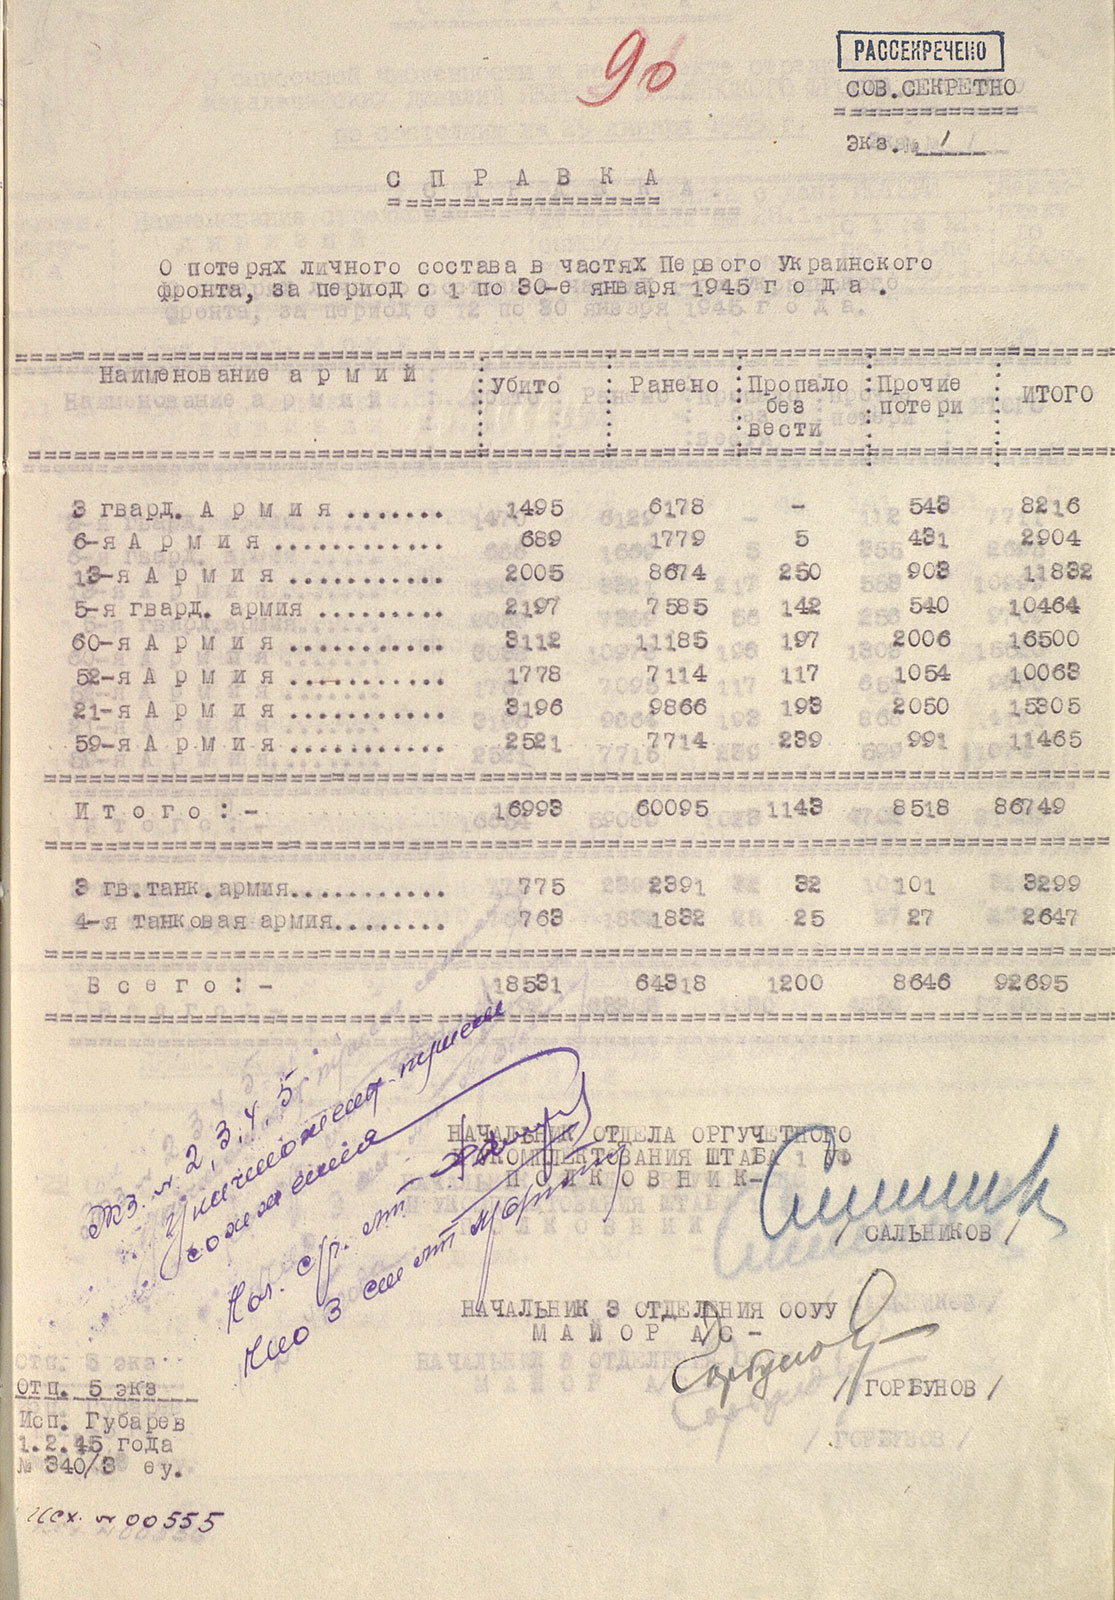 90
РАССЕКРЕЧЕНО
СОВ.СЕКРЕТНО
Экз.№ 1
С П Р А В К А
О потерях личного состава в частях Первого Украинского
фронта, за период с 1 по 30-е января 1945 г о д а .
Наименование а р м и й Убито Ранено Пропало без вести Прочие потери ИТОГО
3 гвард. А р м и я ....... 1495 6178 - 543 8216
6-я А р м и я ............ 689 1779 5 431 2904
13-я А р м и я ........... 2005 8674 250 903 11832
5-я гвард. армия ......... 2197 7585 142 540 10464
60-я А р м и я ........... 3112 11185 197 2006 16500
52-я А р м и я ........... 1778 7114 117 1054 10063
21-я А р м и я ........... 3196 9866 193 2050 15305
59-я А р м и я ........... 2521 7714 239 991 11465
И т о г о : - 16993 60095 1143 8518 86749
3 гв.танк.армия........... 775 2391 32 101 3299
4-я танковая армия........ 763 1832 25 27 2647
В с е г о : - 18531 64318 1200 8646 92695
Экз. № 2, 3, 4, 5
Уничтожены путем
сожжения
НАЧАЛЬНИК ОТДЕЛА ОРГУЧЕТНОГО
И УКОМПЛЕКТОВАНИЯ ШТАБА 1 УФ
П О Л К О В Н И К -
/ САЛЬНИКОВ /
НАЧАЛЬНИК 3 ОТДЕЛЕНИЯ ООУУ
М А Й О Р А/С -
Горбунов
/ ГОРБУНОВ /
Отп. 5 экз
Исп. Губарев
1.2.45 года
№ 340/3 еу.
Исх. № 00555